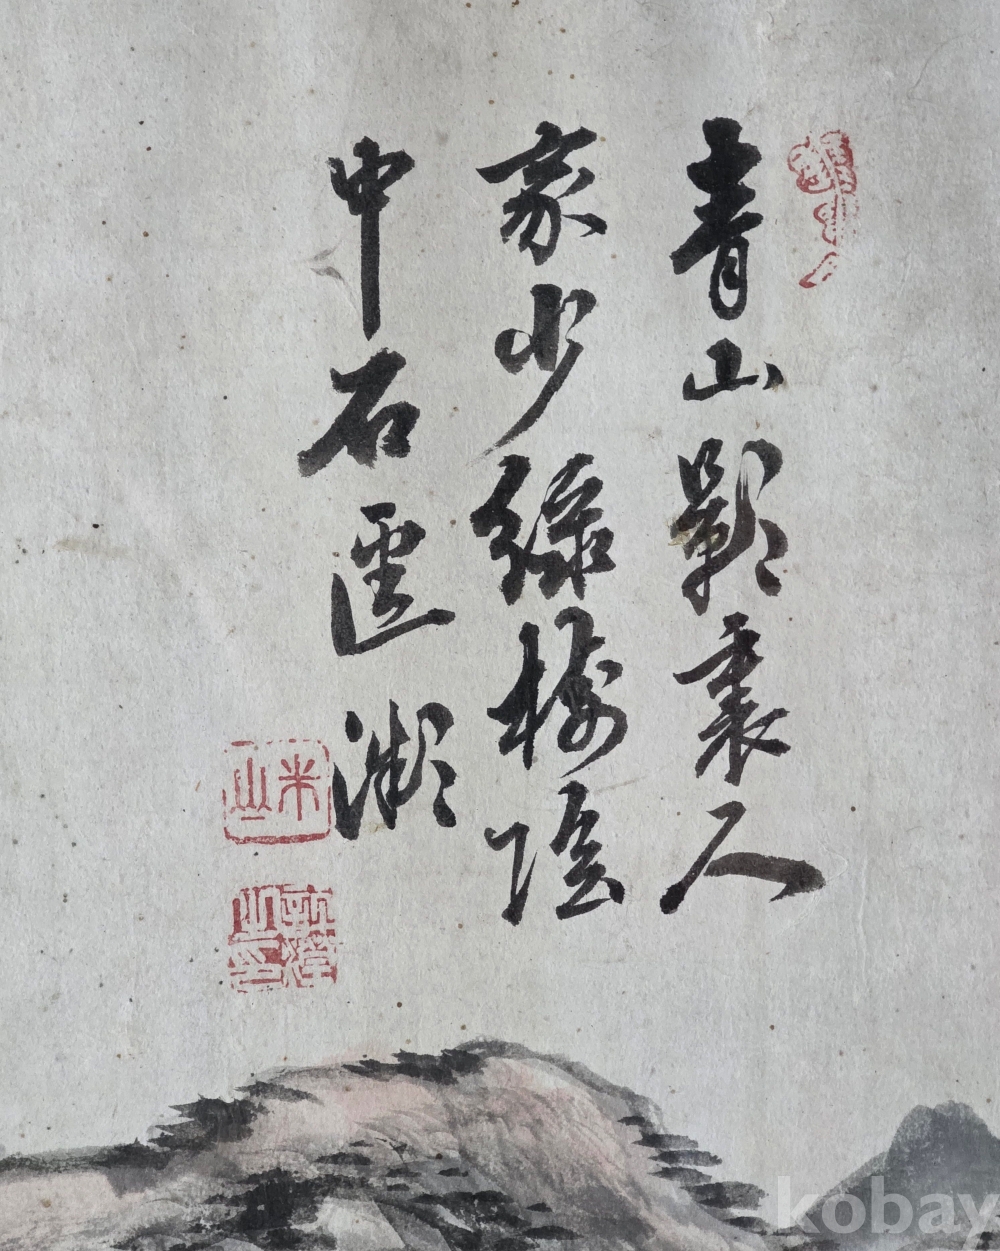 青山影裏人
家少綠樹陰
中石逕
kobay